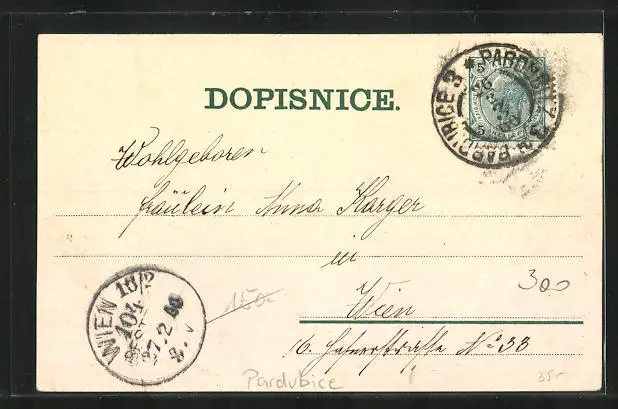 DOPISNICE.
PARDUBICE 3
5 5
Wohlgeboren
Fräulein Anna Karger
in
Wien
16. Hasnerstraße No 33
WIEN 18/2
104
7.2.00
8. V
150-
300
35-
Pardubice